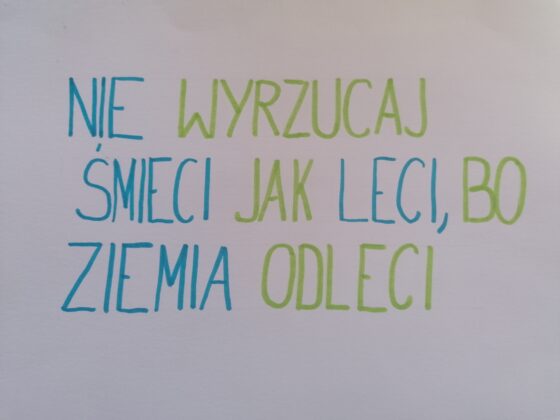 NIE WYRZUCAJ
ŚMIECI JAK LECI, BO
ZIEMIA ODLECI